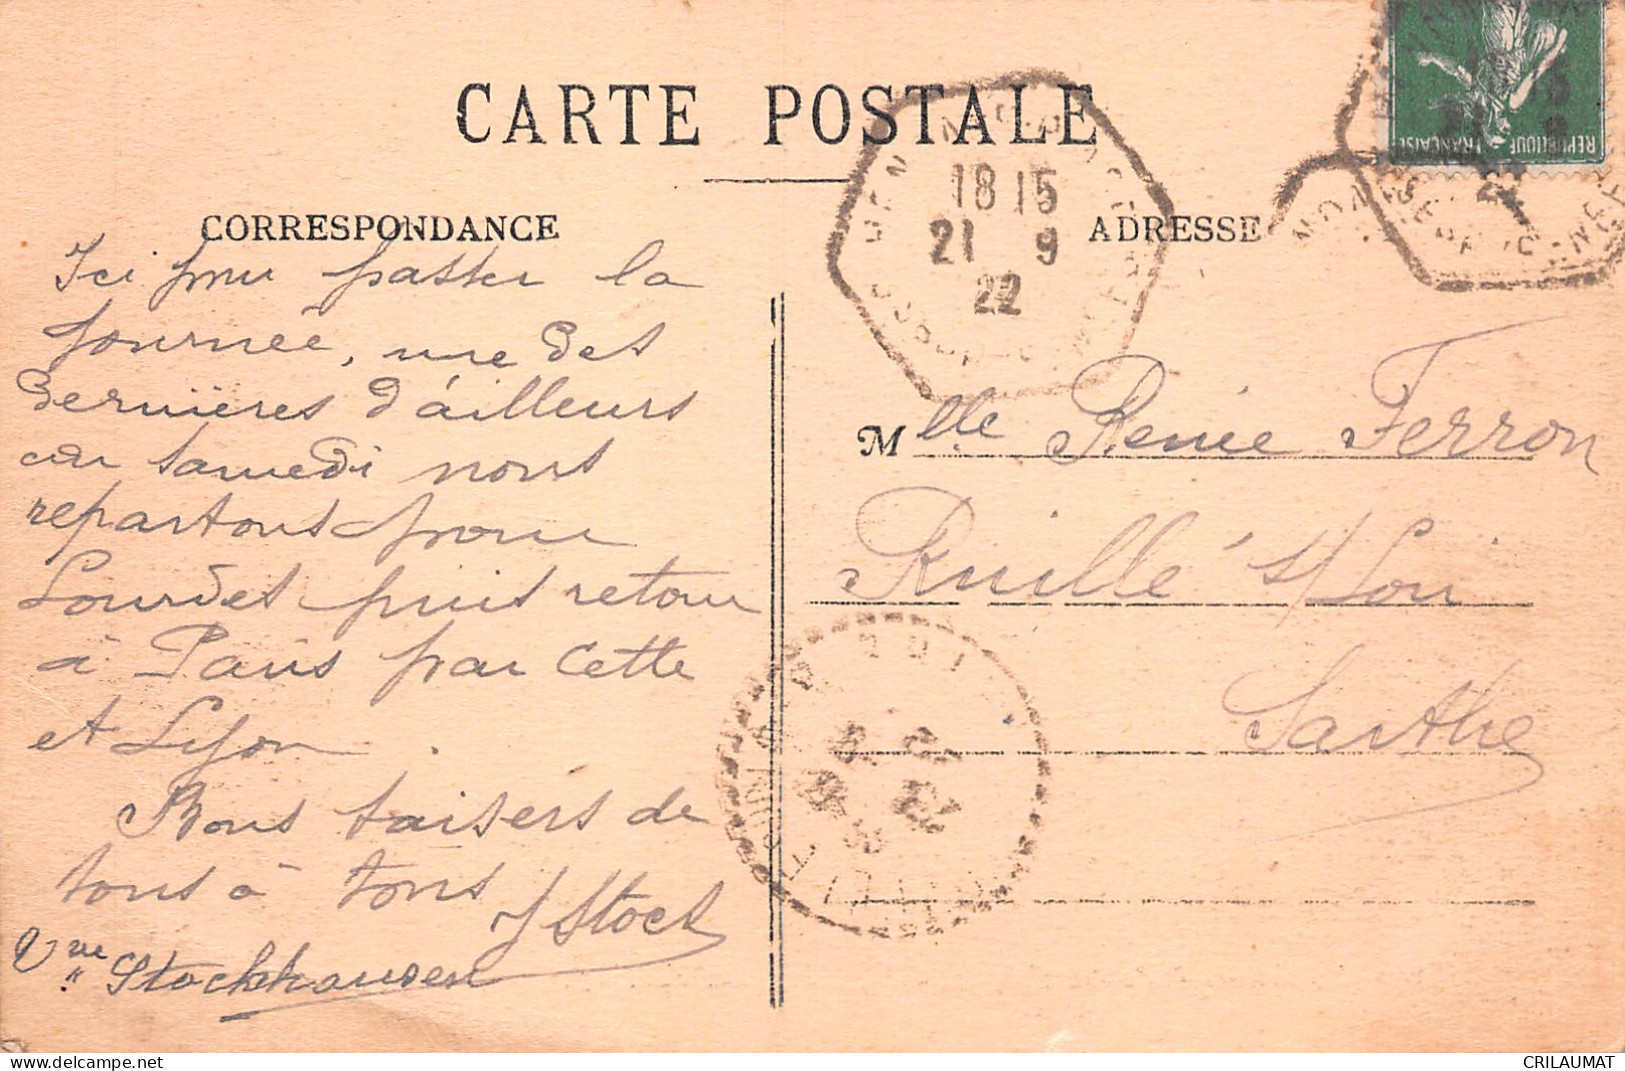 CARTE POSTALE
CORRESPONDANCE
ADRESSE
Ici pour passer la
journée, une des
dernières d'ailleurs
car samedi nous
repartons pour
Lourdes puis retour
à Paris par Cette
et Lyon.
Bons baisers de
tous à tous
J Stock
Vve Stockhausen
18 15
21 9
22
REPUBLIQUE FRANÇAISE
Mlle Renée Ferron
Ruillé s/Loir
Sarthe
delcampe.net
CRILAUMAT